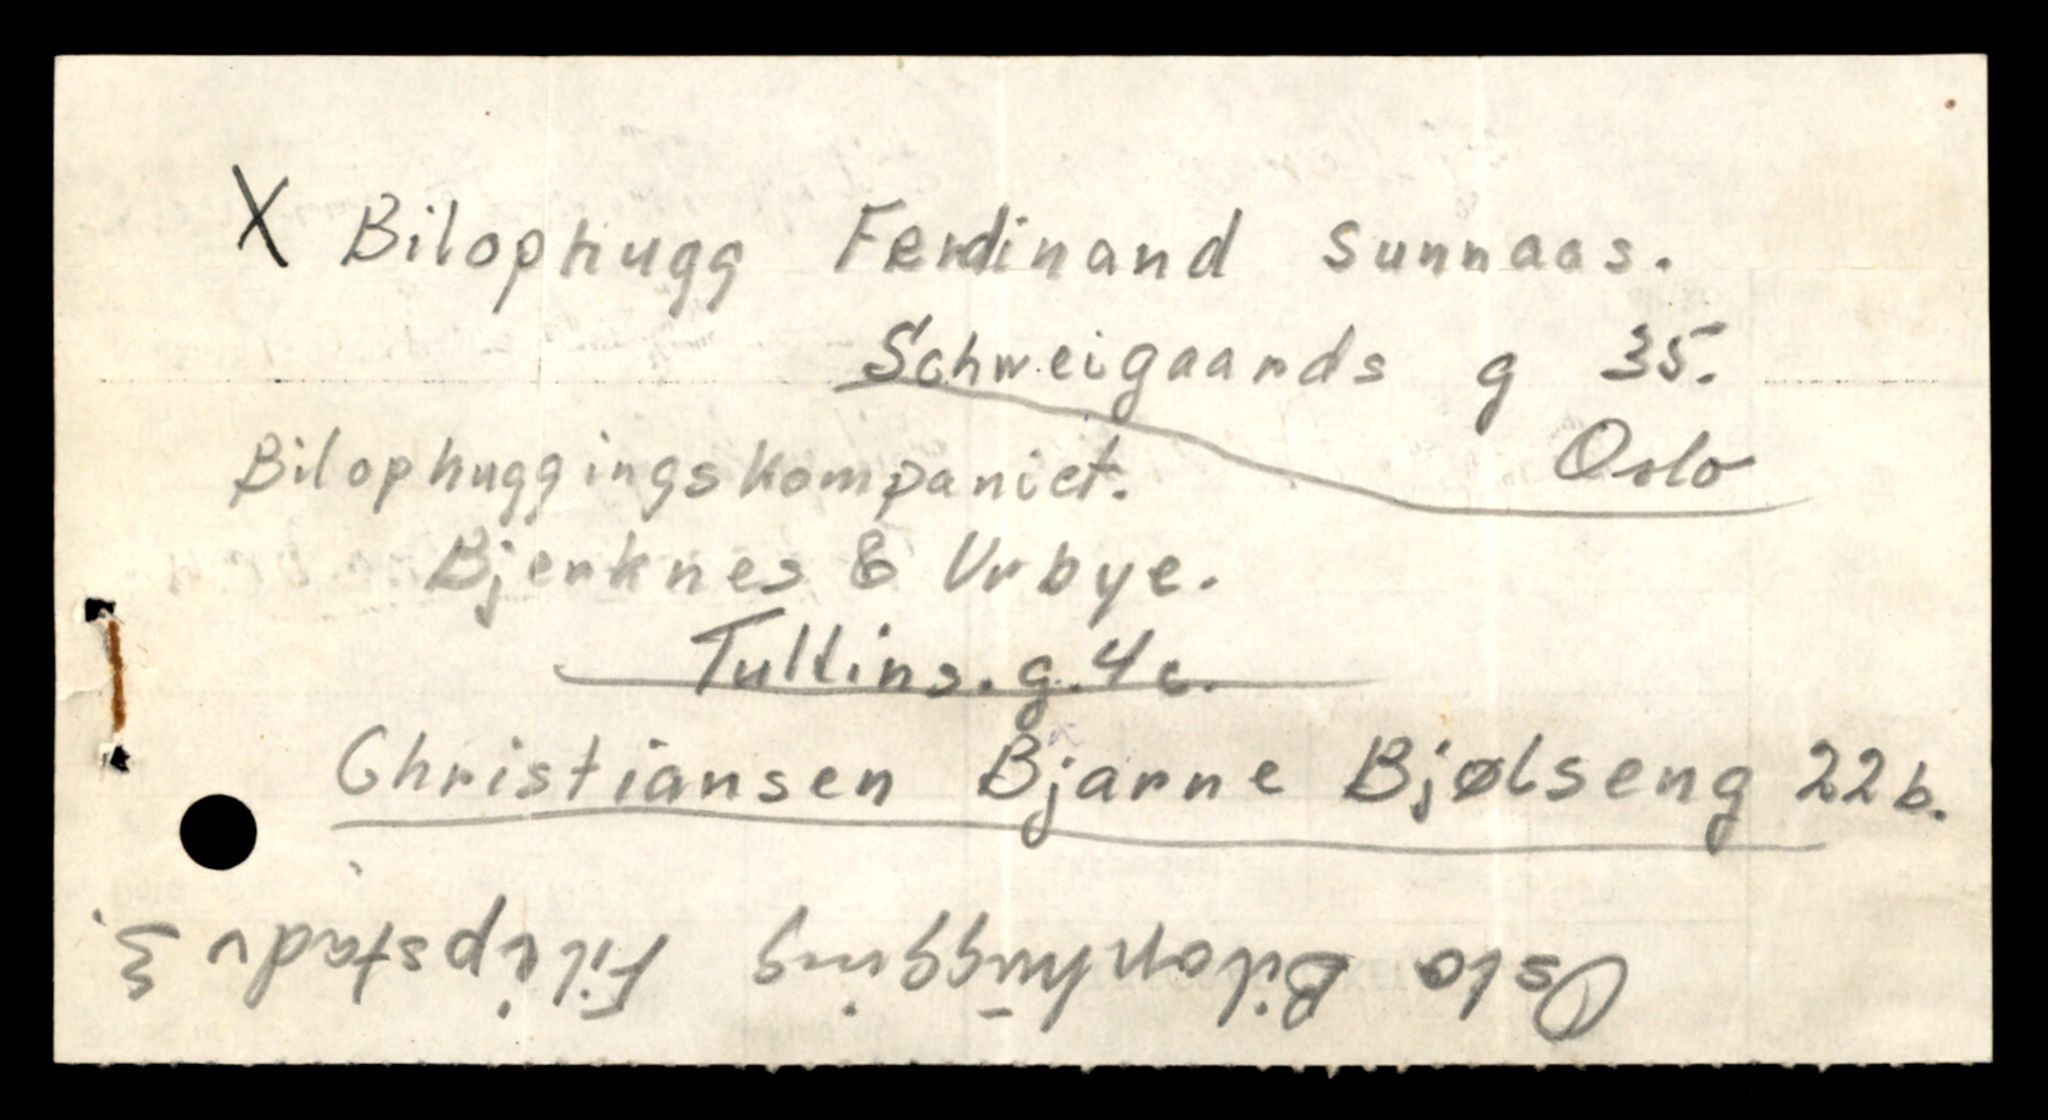 X Bilophugg Ferdinand Sunnaas.
Schweigaards g 35.
Oslo
Bilophuggingskompaniet.
Bjerknes & Urbye.
Tullins. g. 4c.
Christiansen Bjarne Bjølseng 22b.
Oslo Bilophugging Filipstadv 3.